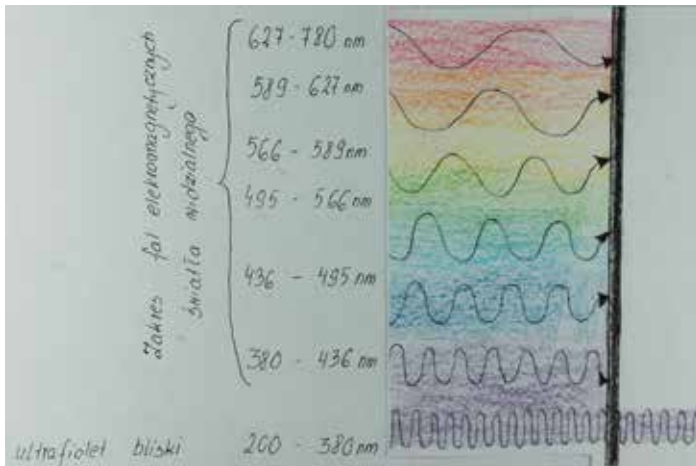 Zakres fal elektromagnetycznych
światła widzialnego
627-780 nm
589-627 nm
566 - 589 nm
495 - 566 nm
436 - 495 nm
380 - 436 nm
ultrafiolet bliski 200 - 380 nm